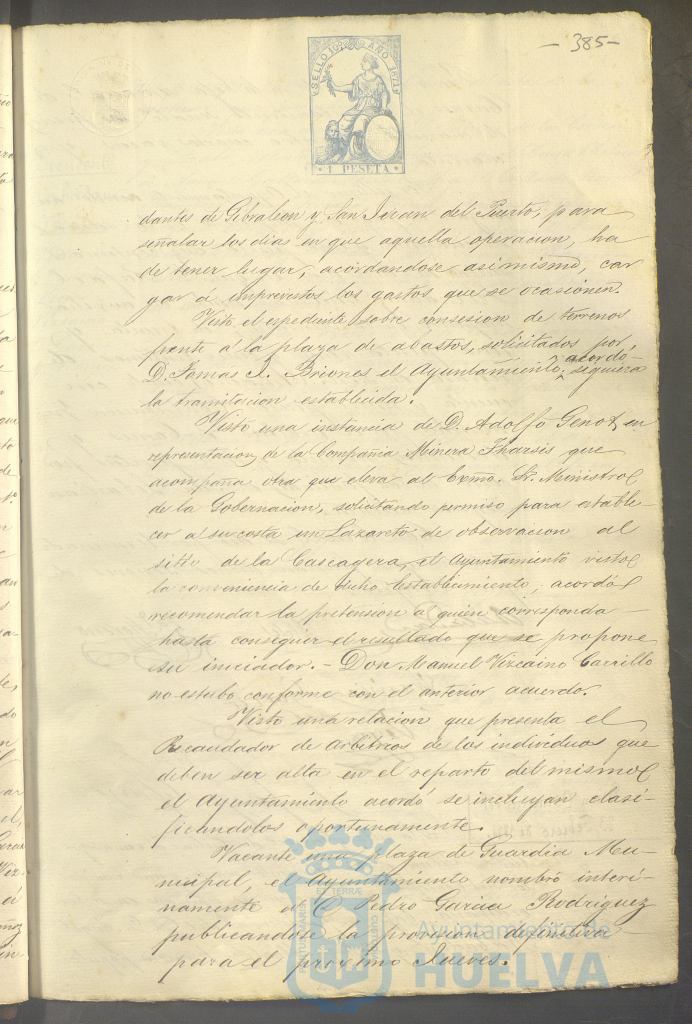 - 385 -
SELLO 10º AÑO 1871
1 PESETA
dantes de Gibraleon y San Juan del Puerto, para
señalar los dias en que aquella operacion, ha
de tener lugar, acordandose asimismo, car
gar á imprevistos los gastos que se ocasionen.
Visto el espediente sobre consesion de terrenos
frente á la plaza de abastos, solicitados por
D. Tomas J. Briones el Ayuntamiento acordó siguiera
la tramitacion establecida.
Visto una instancia de D. Adolfo Genot, en
representacion de la Compañia Minera Tharsis que
acompaña otra que eleva al Excmo. Sr. Ministro
de la Gobernacion, solicitando permiso para estable-
cer á su costa un Lazareto de observacion al
sitio de la Cascagera, el Ayuntamiento visto
la conveniencia de dicho establecimiento, acordó
recomendar la pretension á quien corresponda
hasta conseguir el resultado que se propone
su iniciador. - Don Manuel Vizcaino Carrillo
no estubo conforme con el anterior acuerdo.
Visto una relacion que presenta el
Recaudador de arbitrios de los individuos que
deben ser alta en el reparto del mismo
el Ayuntamiento acordó se incluyan clasi-
ficandolos oportunamente.
Vacante una plaza de Guardia Mu-
nicipal, el Ayuntamiento nombró interi-
namente á C. Pedro Garcia Rodriguez
publicandose la provision definitiva
para el proximo Jueves.
Ayuntamiento de
HUELVA